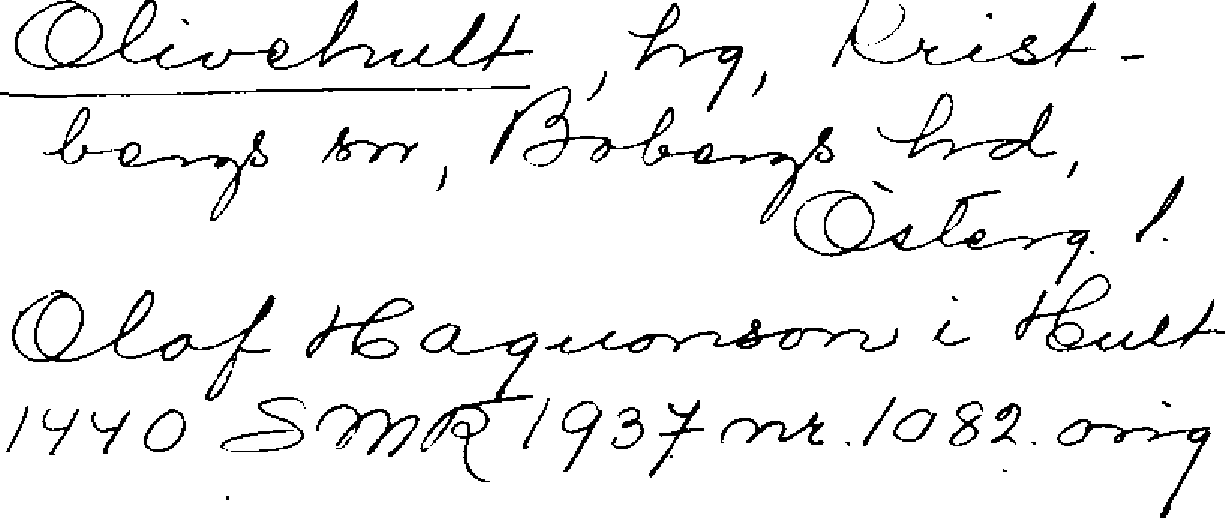 Olivehult, hg, Krist-
bergs sn, Bobergs hd,
Österg. l.
Olaf Haquonson i Hult
1440 SMR 1937 nr. 1082. orig